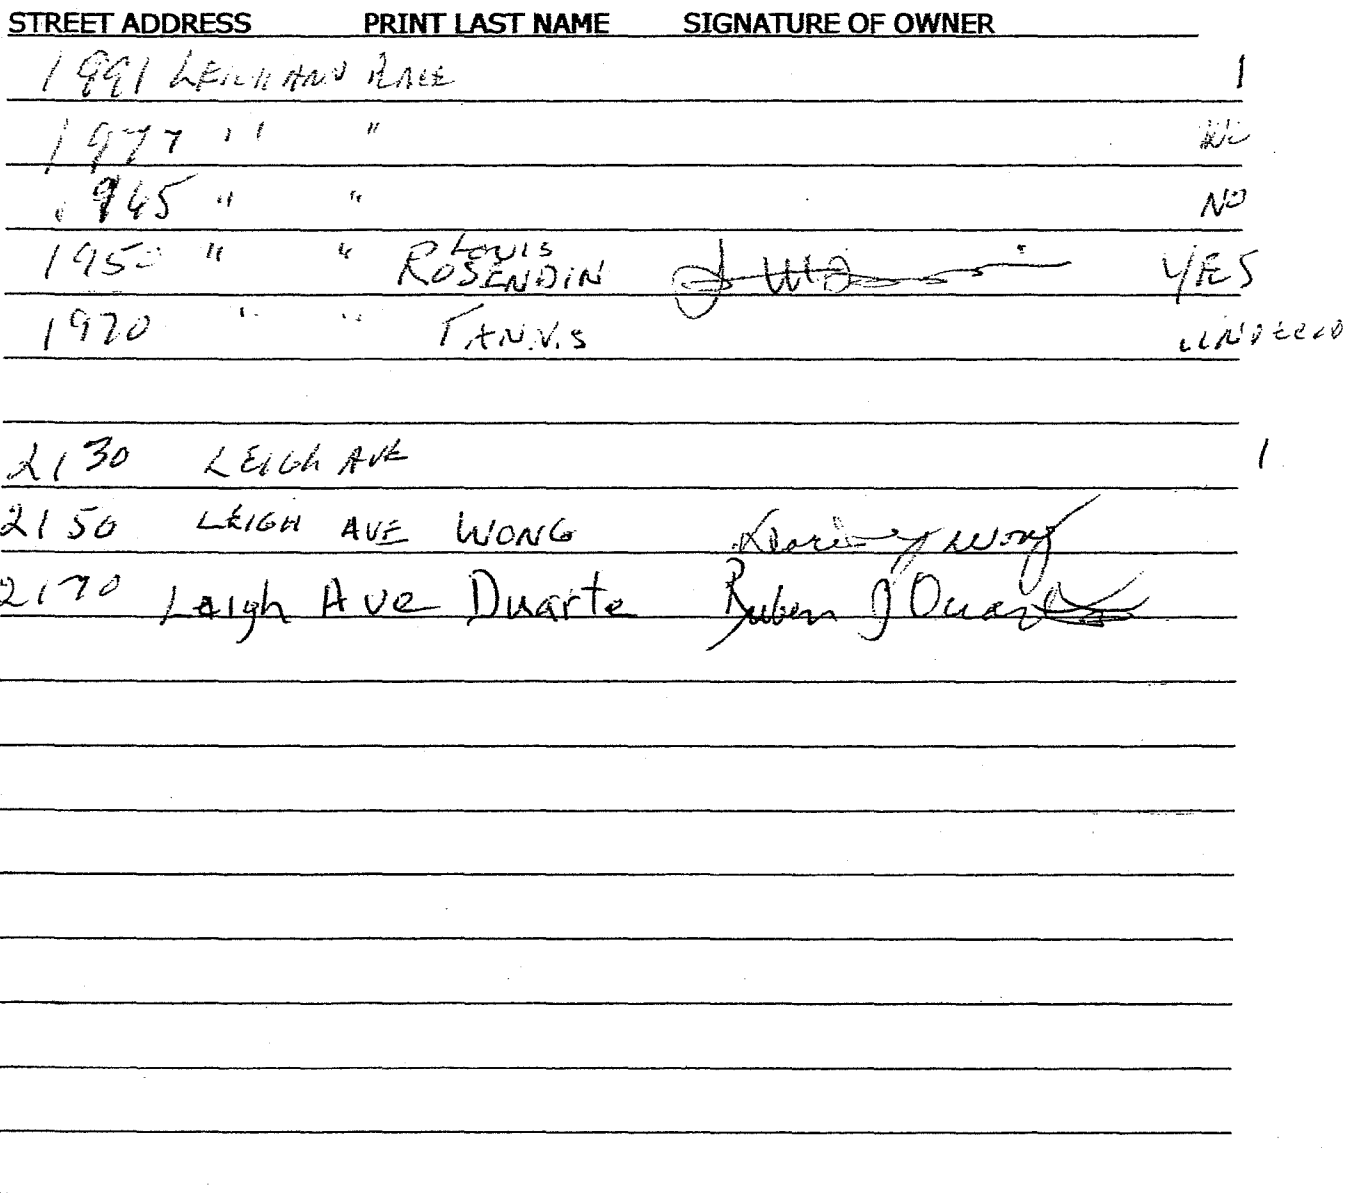 STREET ADDRESS PRINT LAST NAME SIGNATURE OF OWNER
1991 LEIGH ANN PLACE 1
1977 " " NO
1965 " " NO
1950 " " LOUIS ROSENDIN YES
1970 " "
2130 LEIGH AVE 1
2150 LEIGH AVE WONG Wong
2170 Leigh Ave Duarte Ruben J Duarte